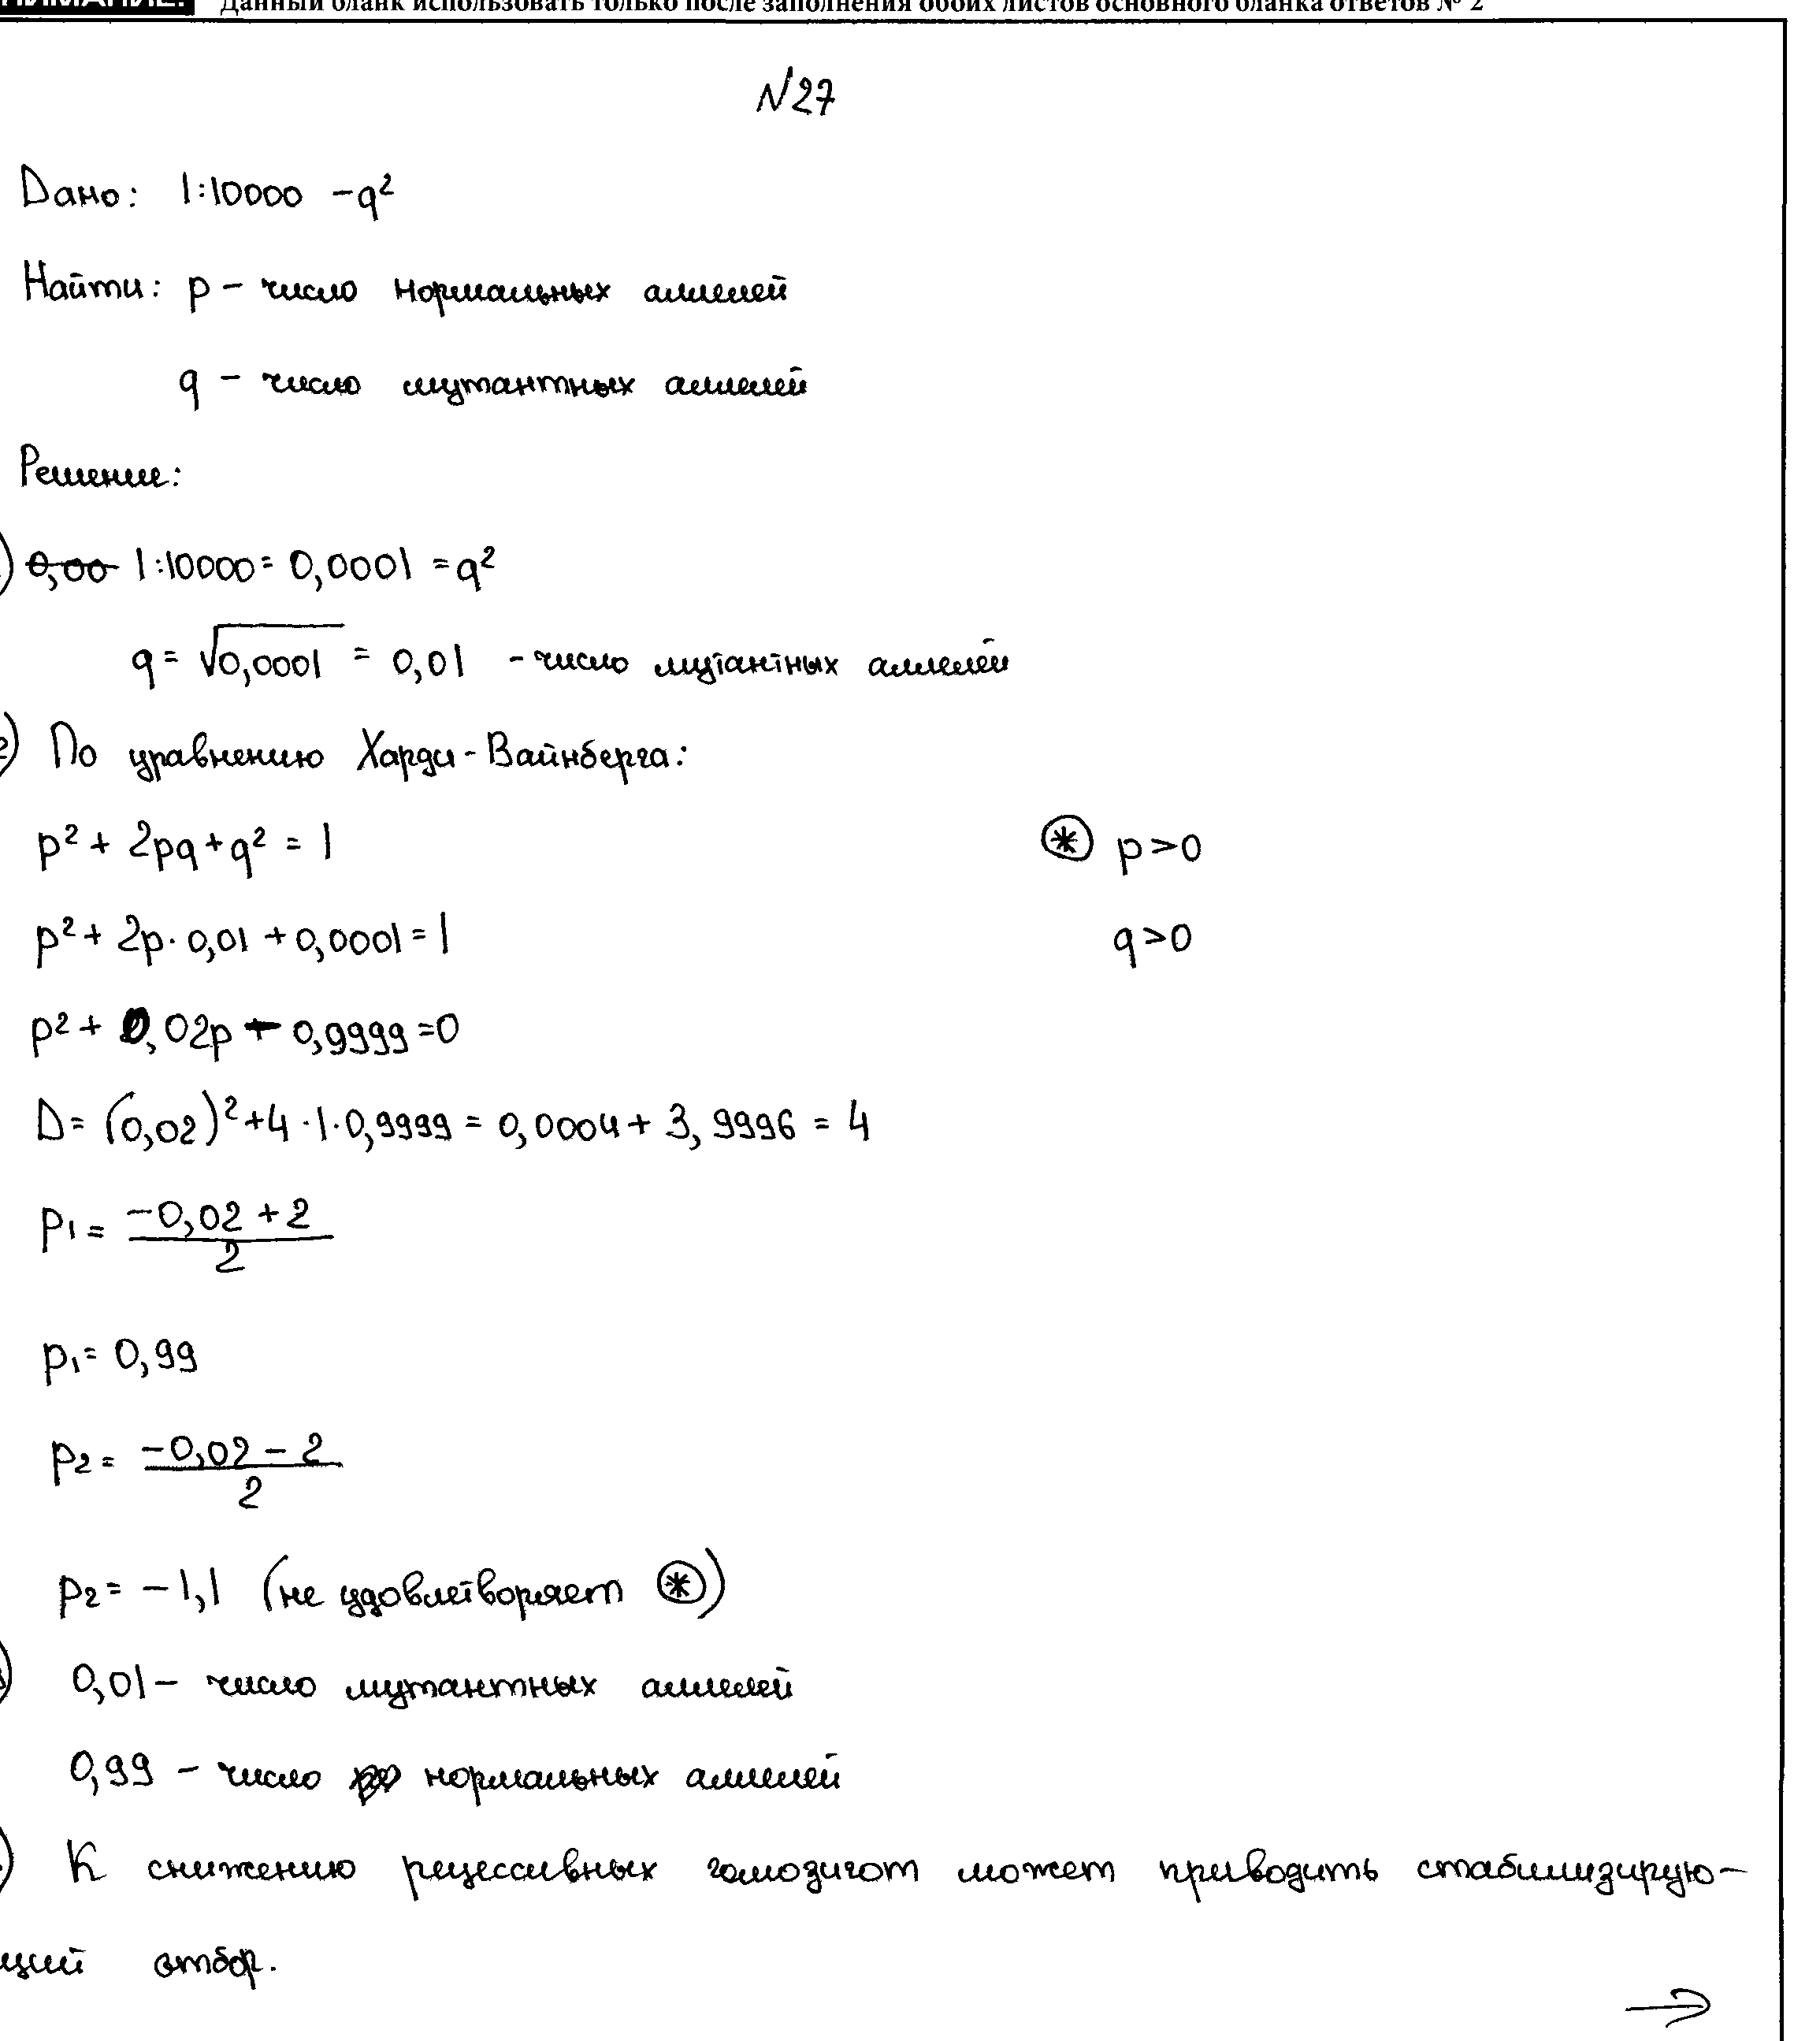 Данный бланк использовать только после заполнения обоих листов основного бланка ответов № 2
№27
Дано: 1:10000 - q²
Найти: p - число нормальных аллелей
q - число мутантных аллелей
Решение:
) 0,00 1:10000 = 0,0001 = q²
q = √0,0001 = 0,01 - число мутантных аллелей
2) По уравнению Харди-Вайнберга:
p² + 2pq + q² = 1
⊛ p>0
p² + 2p · 0,01 + 0,0001 = 1
q>0
p² + 0,02p - 0,9999 = 0
D = (0,02)² + 4 · 1 · 0,9999 = 0,0004 + 3,9996 = 4
p₁ = (-0,02 + 2) / 2
p₁ = 0,99
p₂ = (-0,02 - 2) / 2
p₂ = -1,1 (не удовлетворяет ⊛)
) 0,01 - число мутантных аллелей
0,99 - число нормальных аллелей
) К снижению рецессивных гомозигот может приводить стабилизирую-
щий отбор.
→